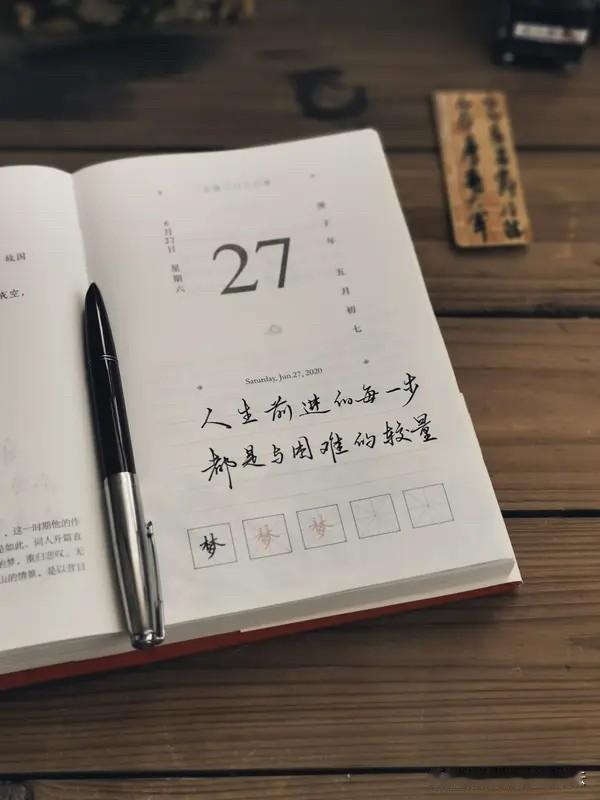 故国
成空，
，这一时期他的作
是如此。词人开篇直
的梦，重归悲叹。无
山的情景，是以昔日
6月27日 星期六
27
庚子年 五月初七
Saturday, Jun.27, 2020
人生前进的每一步
都是与困难的较量
梦 梦 梦